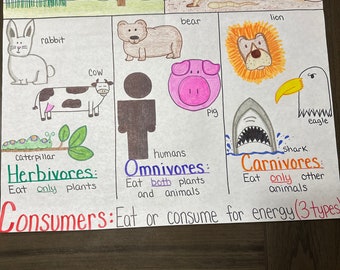 rabbit
bear
lion
cow
pig
eagle
caterpillar
humans
shark
Herbivores:
Eat only plants
Omnivores:
Eat both plants
and animals
Carnivores:
Eat only other
animals
Consumers: Eat or consume for energy (3 types)